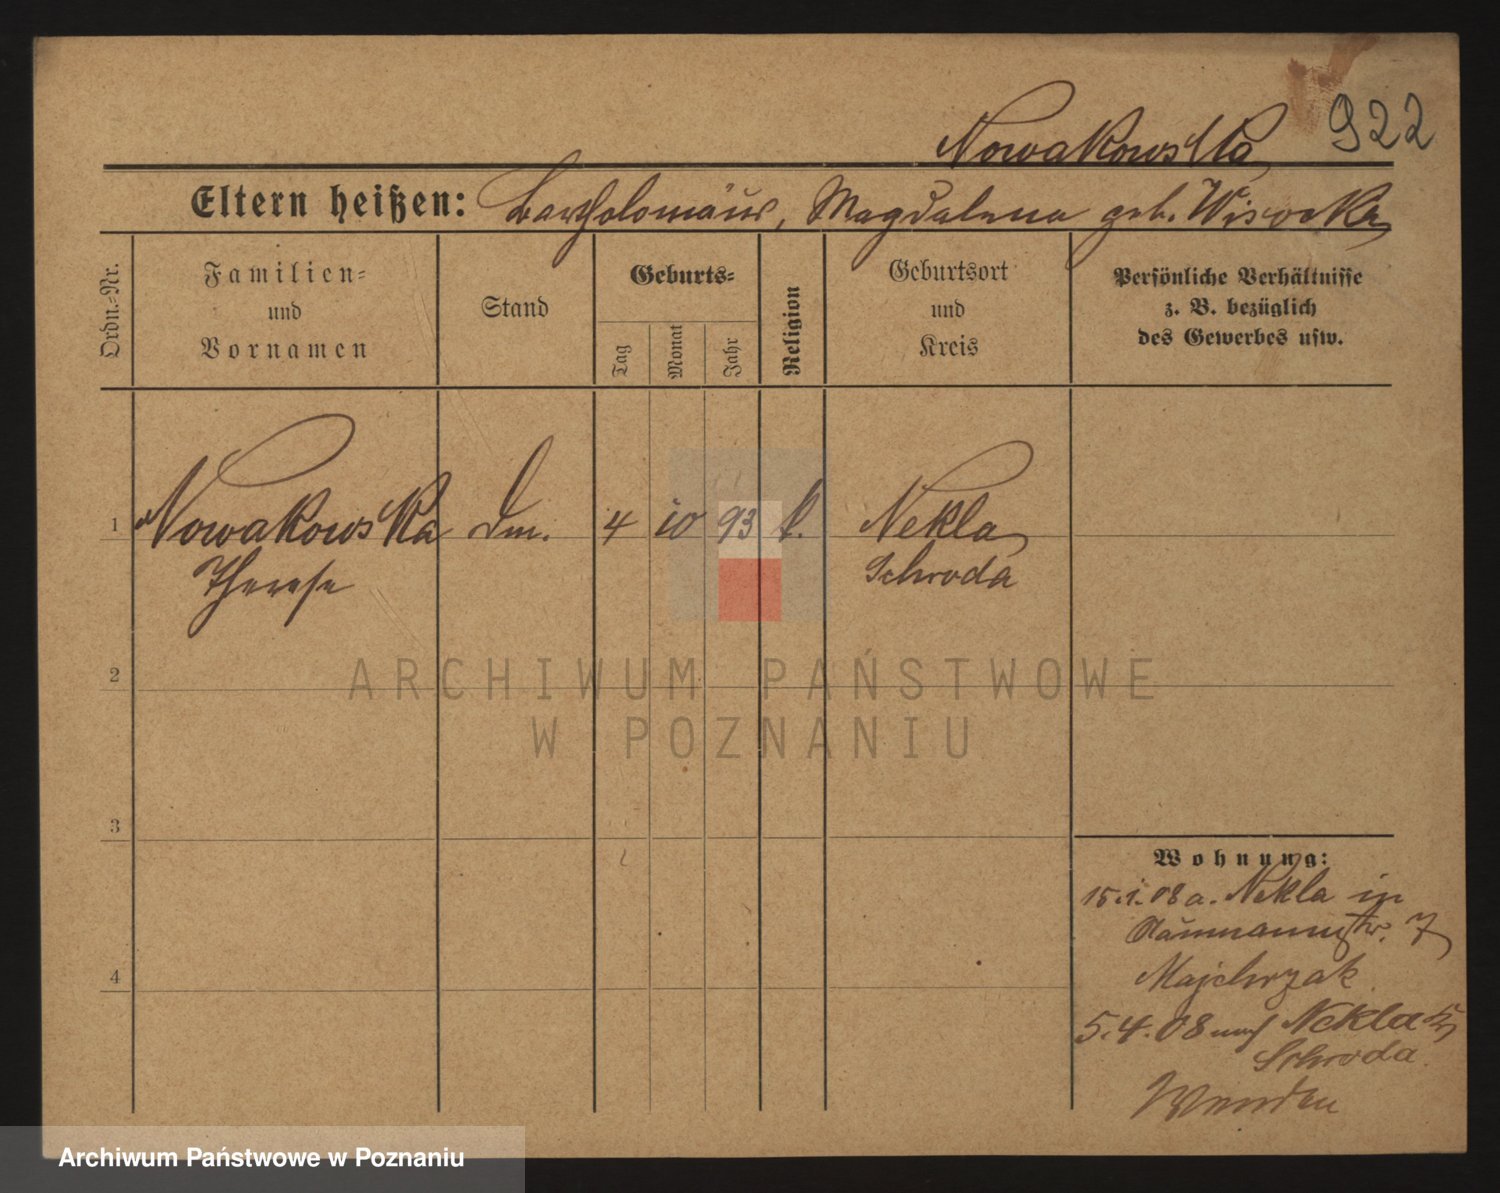 Nowakowska 922
Eltern heißen: Bartholomäus, Magdalena geb. Wisocka
Ordn.=Nr.
Familien=
und
Vornamen
Stand
Geburts=
Tag
Monat
Jahr
Religion
Geburtsort
und
Kreis
Persönliche Verhältnisse
z. B. bezüglich
des Gewerbes usw.
1 Nowakowska Dm. 4 10 93 k. Nekla
Therese Schroda
2
ARCHIWUM PAŃSTWOWE
W POZNANIU
3
Wohnung:
15.1.08 a. Nekla in
Naumannstr. 7
4
Majchrzak
5.4.08 nach Nekla
Schroda
Wenden
Archiwum Państwowe w Poznaniu